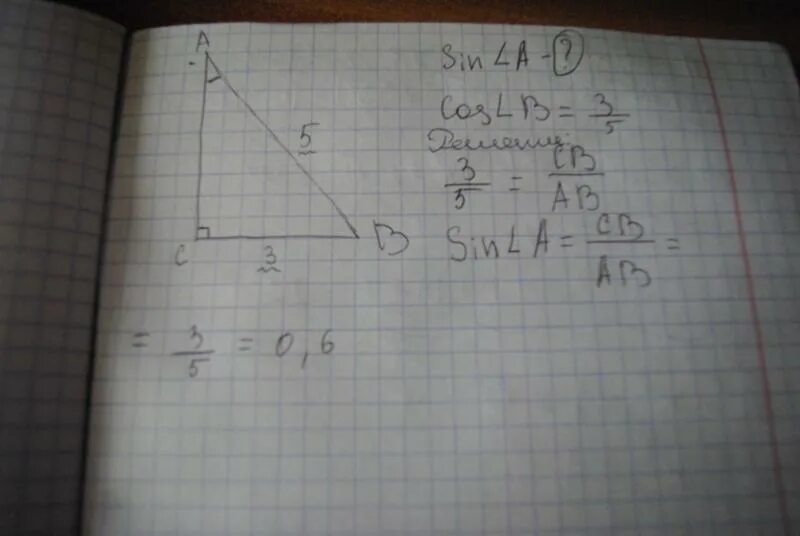 A
5
C
3
B
Sin∠A - ?
Cos∠B = 3/5
Решение:
3/5 = CB/AB
Sin∠A = CB/AB =
= 3/5 = 0,6